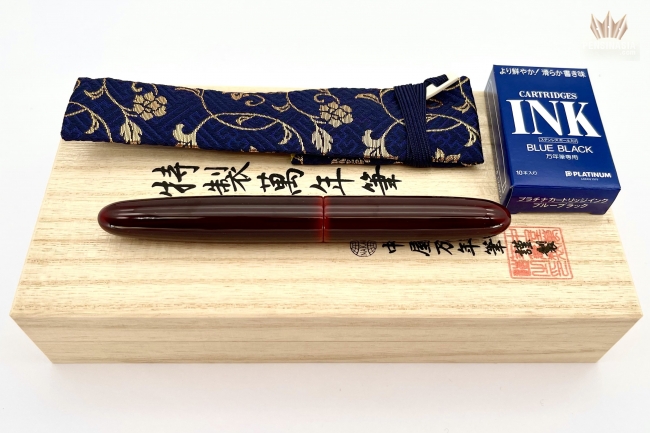 より鮮やか! 滑らか書き味
CARTRIDGES
INK
BLUE BLACK
万年筆専用
10本入り
PLATINUM
プラチナカートリッジインク
ブルーブラック
特製萬年筆
中屋万年筆
謹製